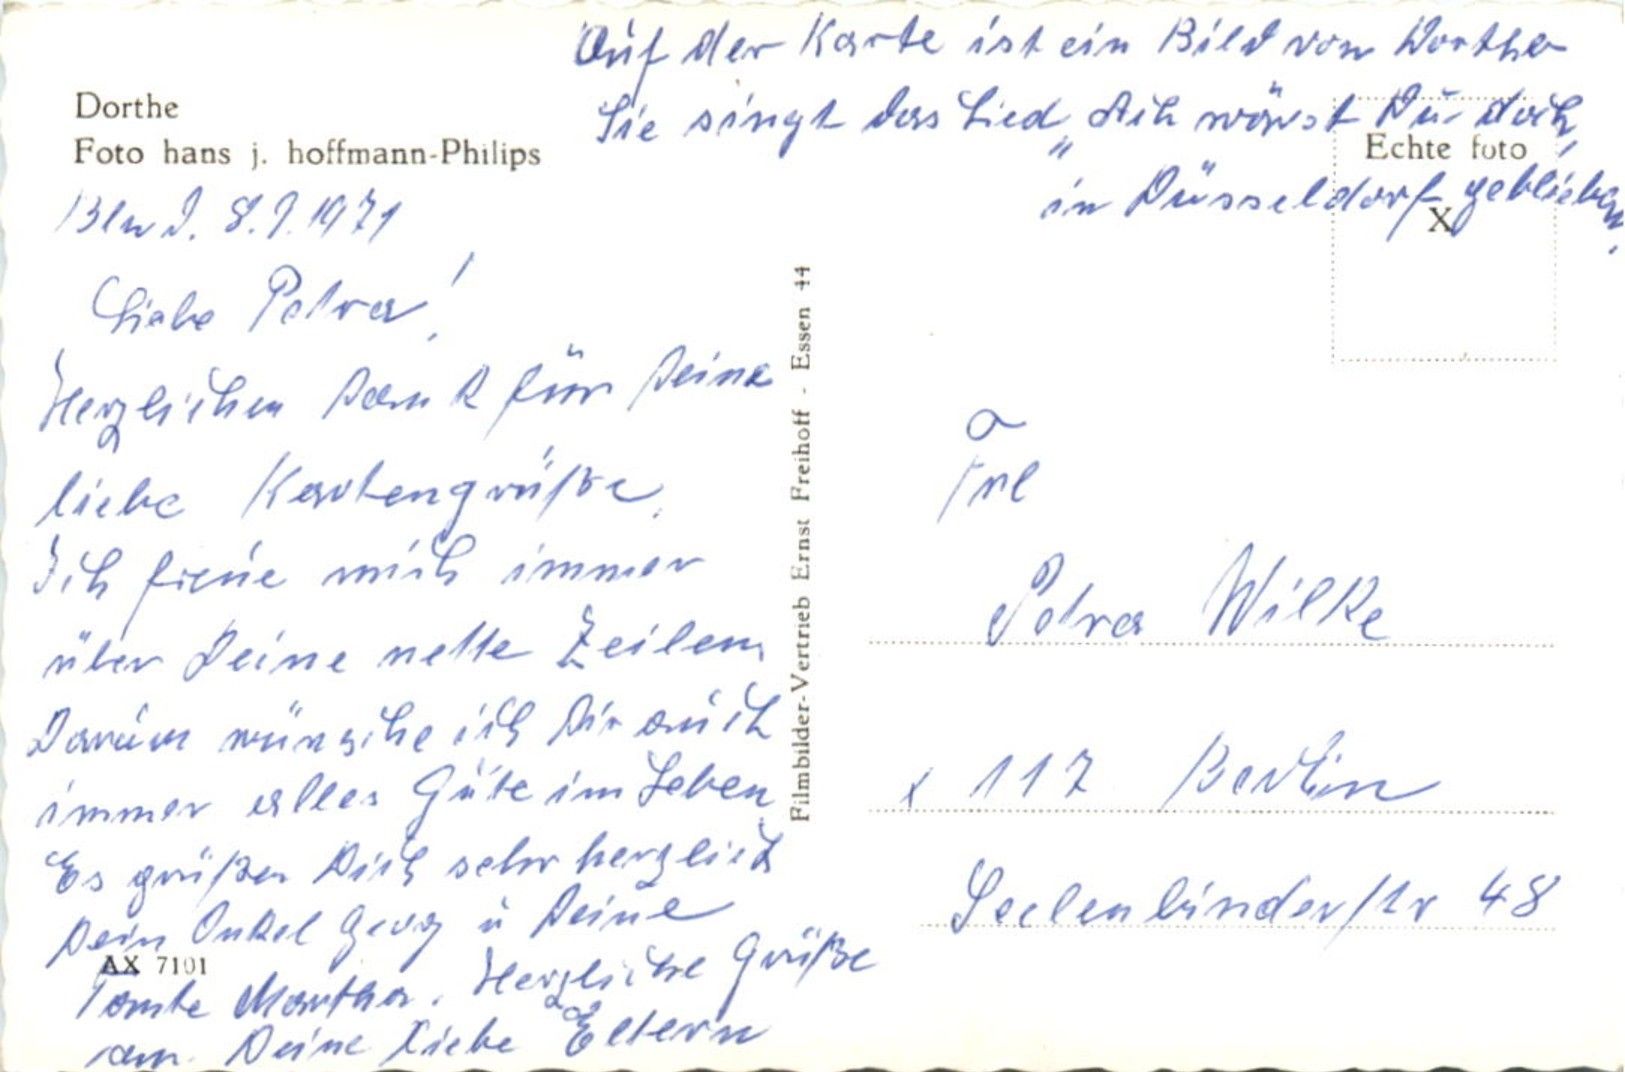 Auf der Karte ist ein Bild von Dorthe
Sie singt das Lied „Ach wärst Du doch
in Düsseldorf geblieben.
Dorthe
Foto hans j. hoffmann-Philips
Echte foto
X
Bln 8.7.1971
Liebe Petra!
Herzlichen Dank für Deine
liebe Kartengrüße.
Ich freue mich immer
über Deine nette Zeilen.
Darum wünsche ich Dir auch
immer alles Gute im Leben
Es grüßen Dich sehr herzlich
Dein Onkel Georg u Deine
AX 7101
Tante Martha. Herzliche Grüße
an Deine liebe Eltern
Filmbilder-Vertrieb Ernst Freihoff - Essen 44
Frl
Petra Wilke
x 117 Berlin
Seelenbinderstr 48